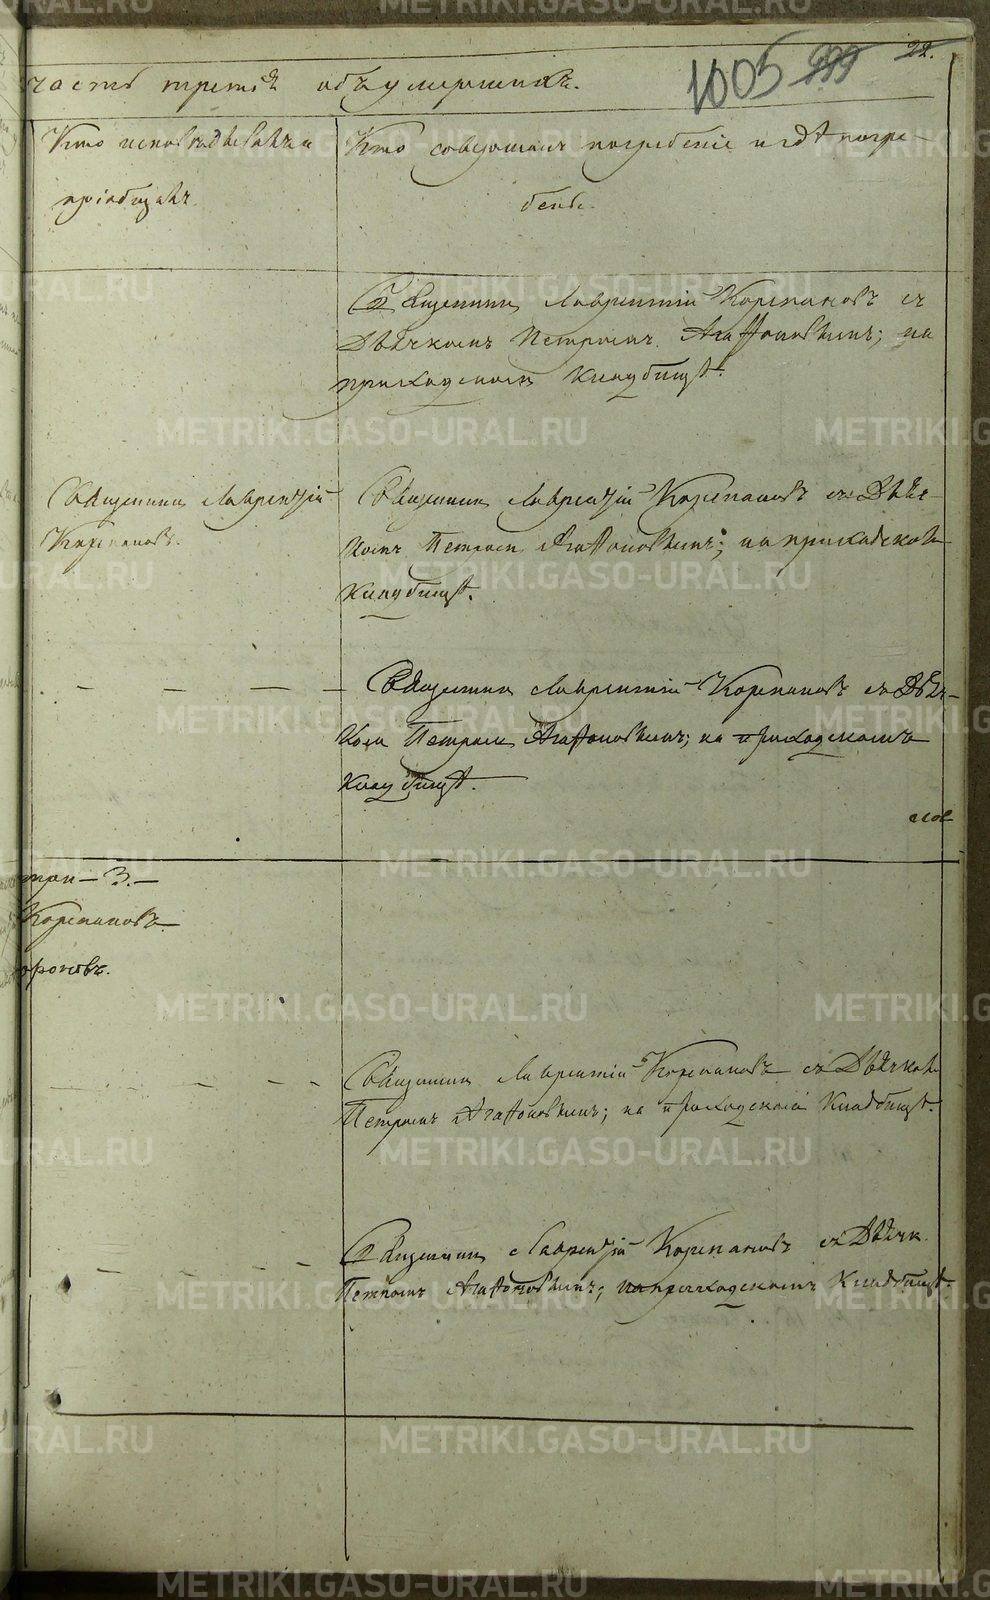 22.
1005 999
часть третія объ умершихъ.
Кто исповѣдывалъ и
пріобщалъ.
Кто совершалъ погребеніе и гдѣ погре-
бены.
Священникъ Лаврентій Корепановъ съ
Дьячкомъ Петромъ Агафоновымъ; на
приходскомъ кладбищѣ.
Священникъ Лаврентій
Корепановъ.
Священникъ Лаврентій Корепановъ съ Дьяч-
комъ Петромъ Агафоновымъ; на приходскомъ
кладбищѣ.
Священникъ Лаврентій Корепановъ съ Дьяч-
комъ Петромъ Агафоновымъ; на приходскомъ
кладбищѣ.
три - 3. -
Корепановъ
Священникъ Лаврентій Корепановъ съ Дьячкомъ
Петромъ Агафоновымъ; на приходскомъ Кладбищѣ.
Священникъ Лаврентій Корепановъ съ Дьячк.
Петромъ Агафоновымъ; на приходскомъ Кладбищѣ.
METRIKI.GASO-URAL.RU